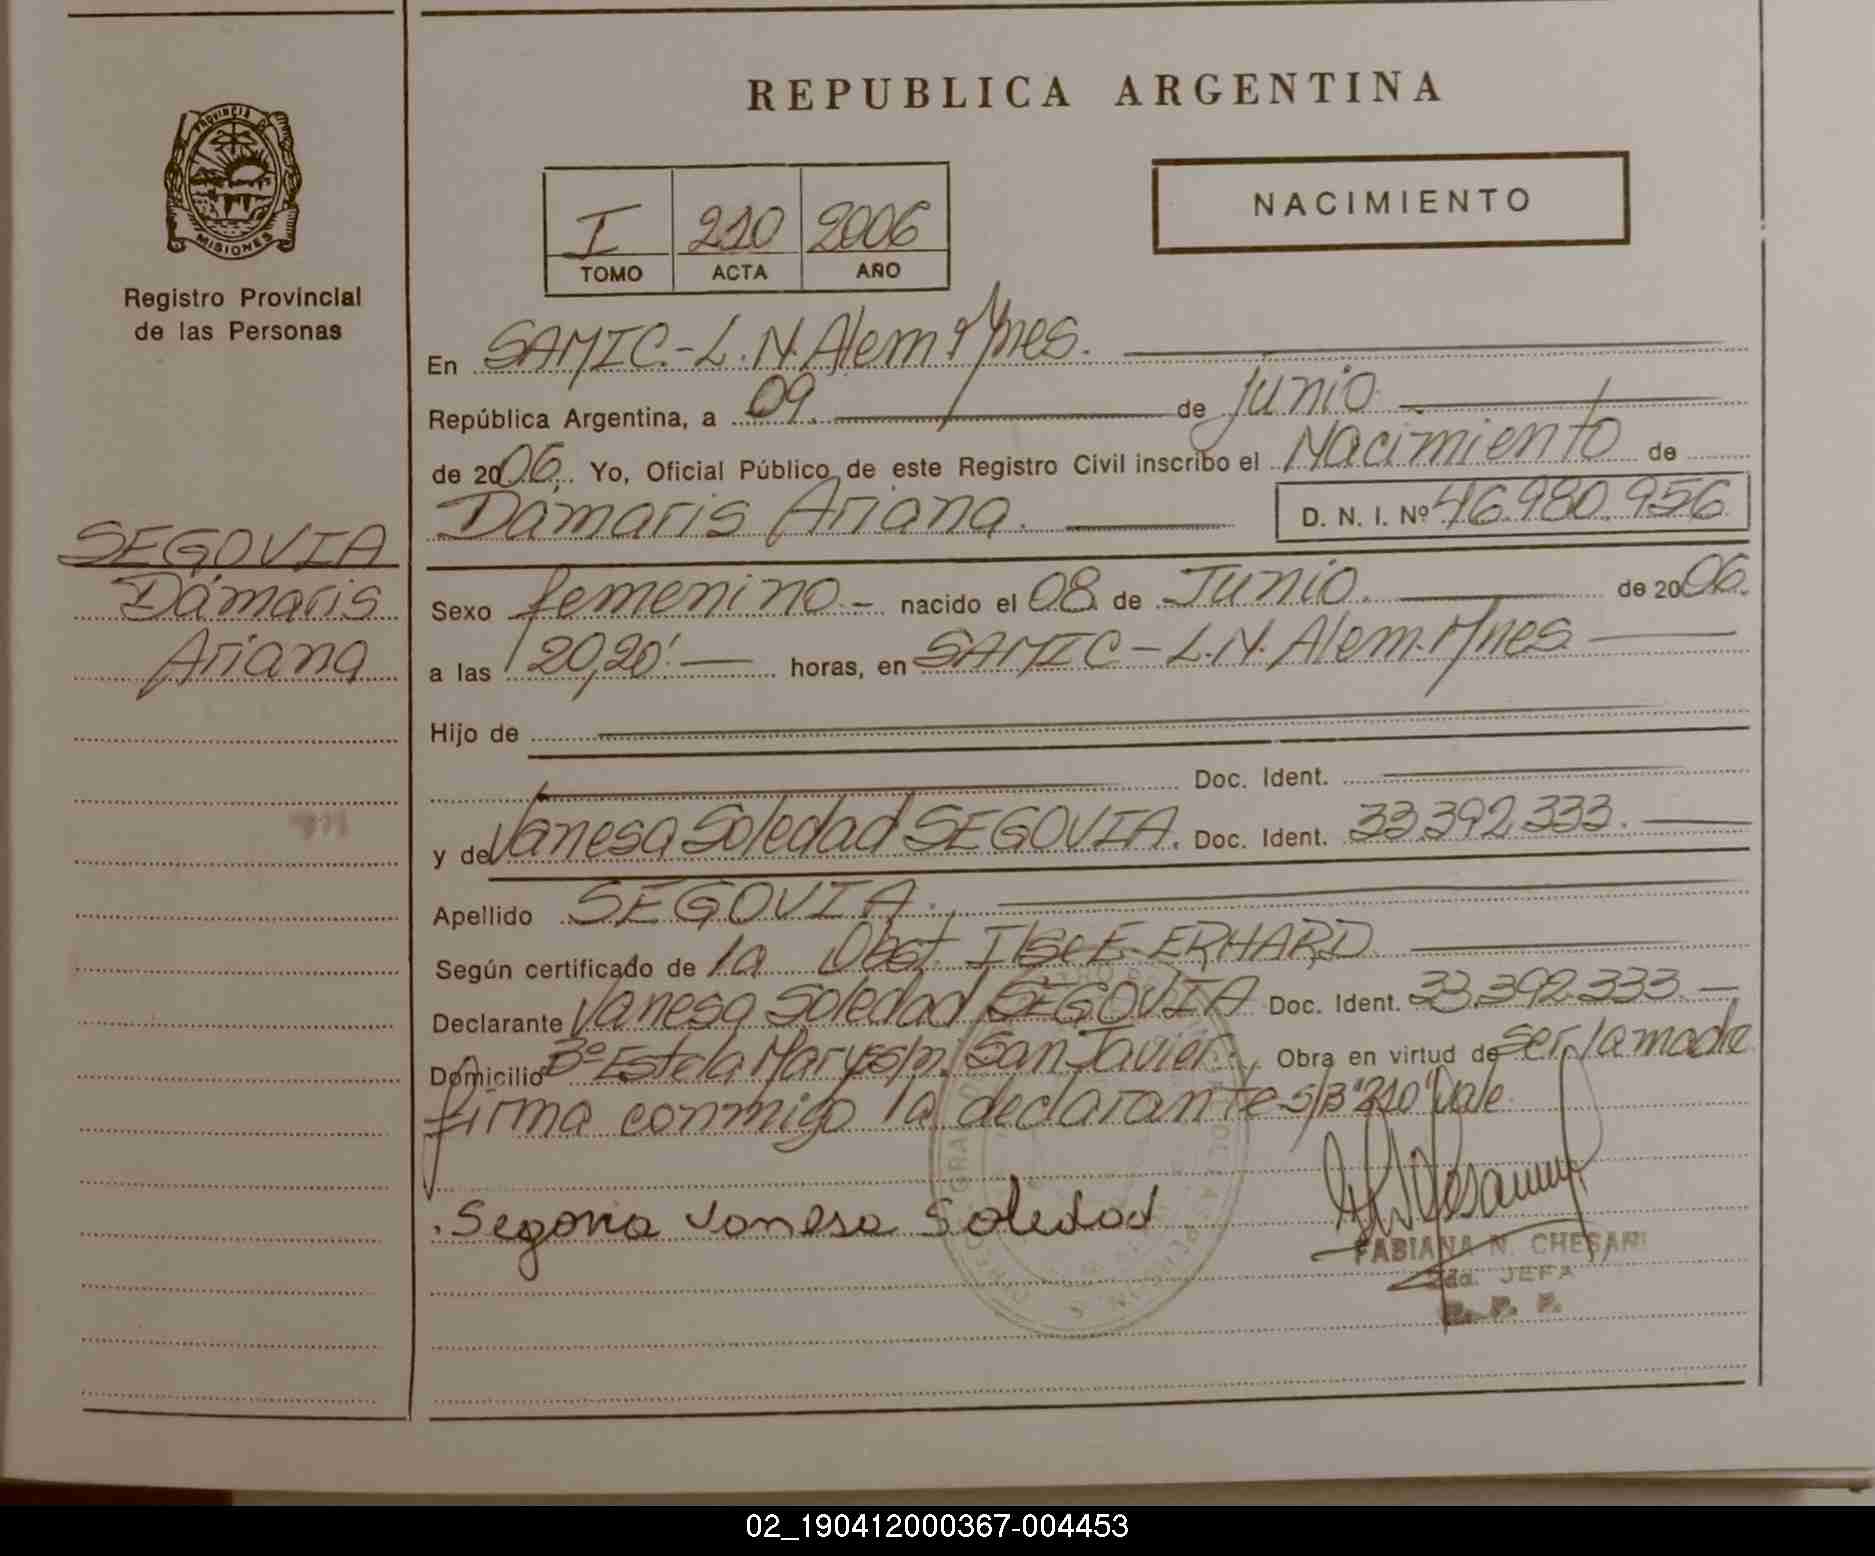 REPUBLICA ARGENTINA
PROVINCIA DE
MISIONES
Registro Provincial
de las Personas
I 210 2006
TOMO ACTA AÑO
NACIMIENTO
En SAMIC.-L.N.Alem Mnes.
República Argentina, a 09. de junio
de 2006. Yo, Oficial Público de este Registro Civil inscribo el Nacimiento de
Dámaris Ariana. D. N. I. Nº 46.980.956
SEGOVIA
Dámaris
Ariana
Sexo femenino.- nacido el 08 de Junio. de 2006.
a las 20,20'.- horas, en SAMIC-L.N.Alem.Mnes.
Hijo de
Doc. Ident.
y de Vanesa Soledad SEGOVIA. Doc. Ident. 33.392.333.
Apellido SEGOVIA.
Según certificado de la Obst. Ilse E. ERHARD.
Declarante Vanesa Soledad SEGOVIA Doc. Ident. 33.392.333.-
Domicilio Bº Estela Marys San Javier. Obra en virtud de ser la madre
firma conmigo la declarante S/B "210" Vale.
Segovia Vanesa Soledad
FABIANA N. CHESANI
2da. JEFA
R. P. P.
02_190412000367-004453